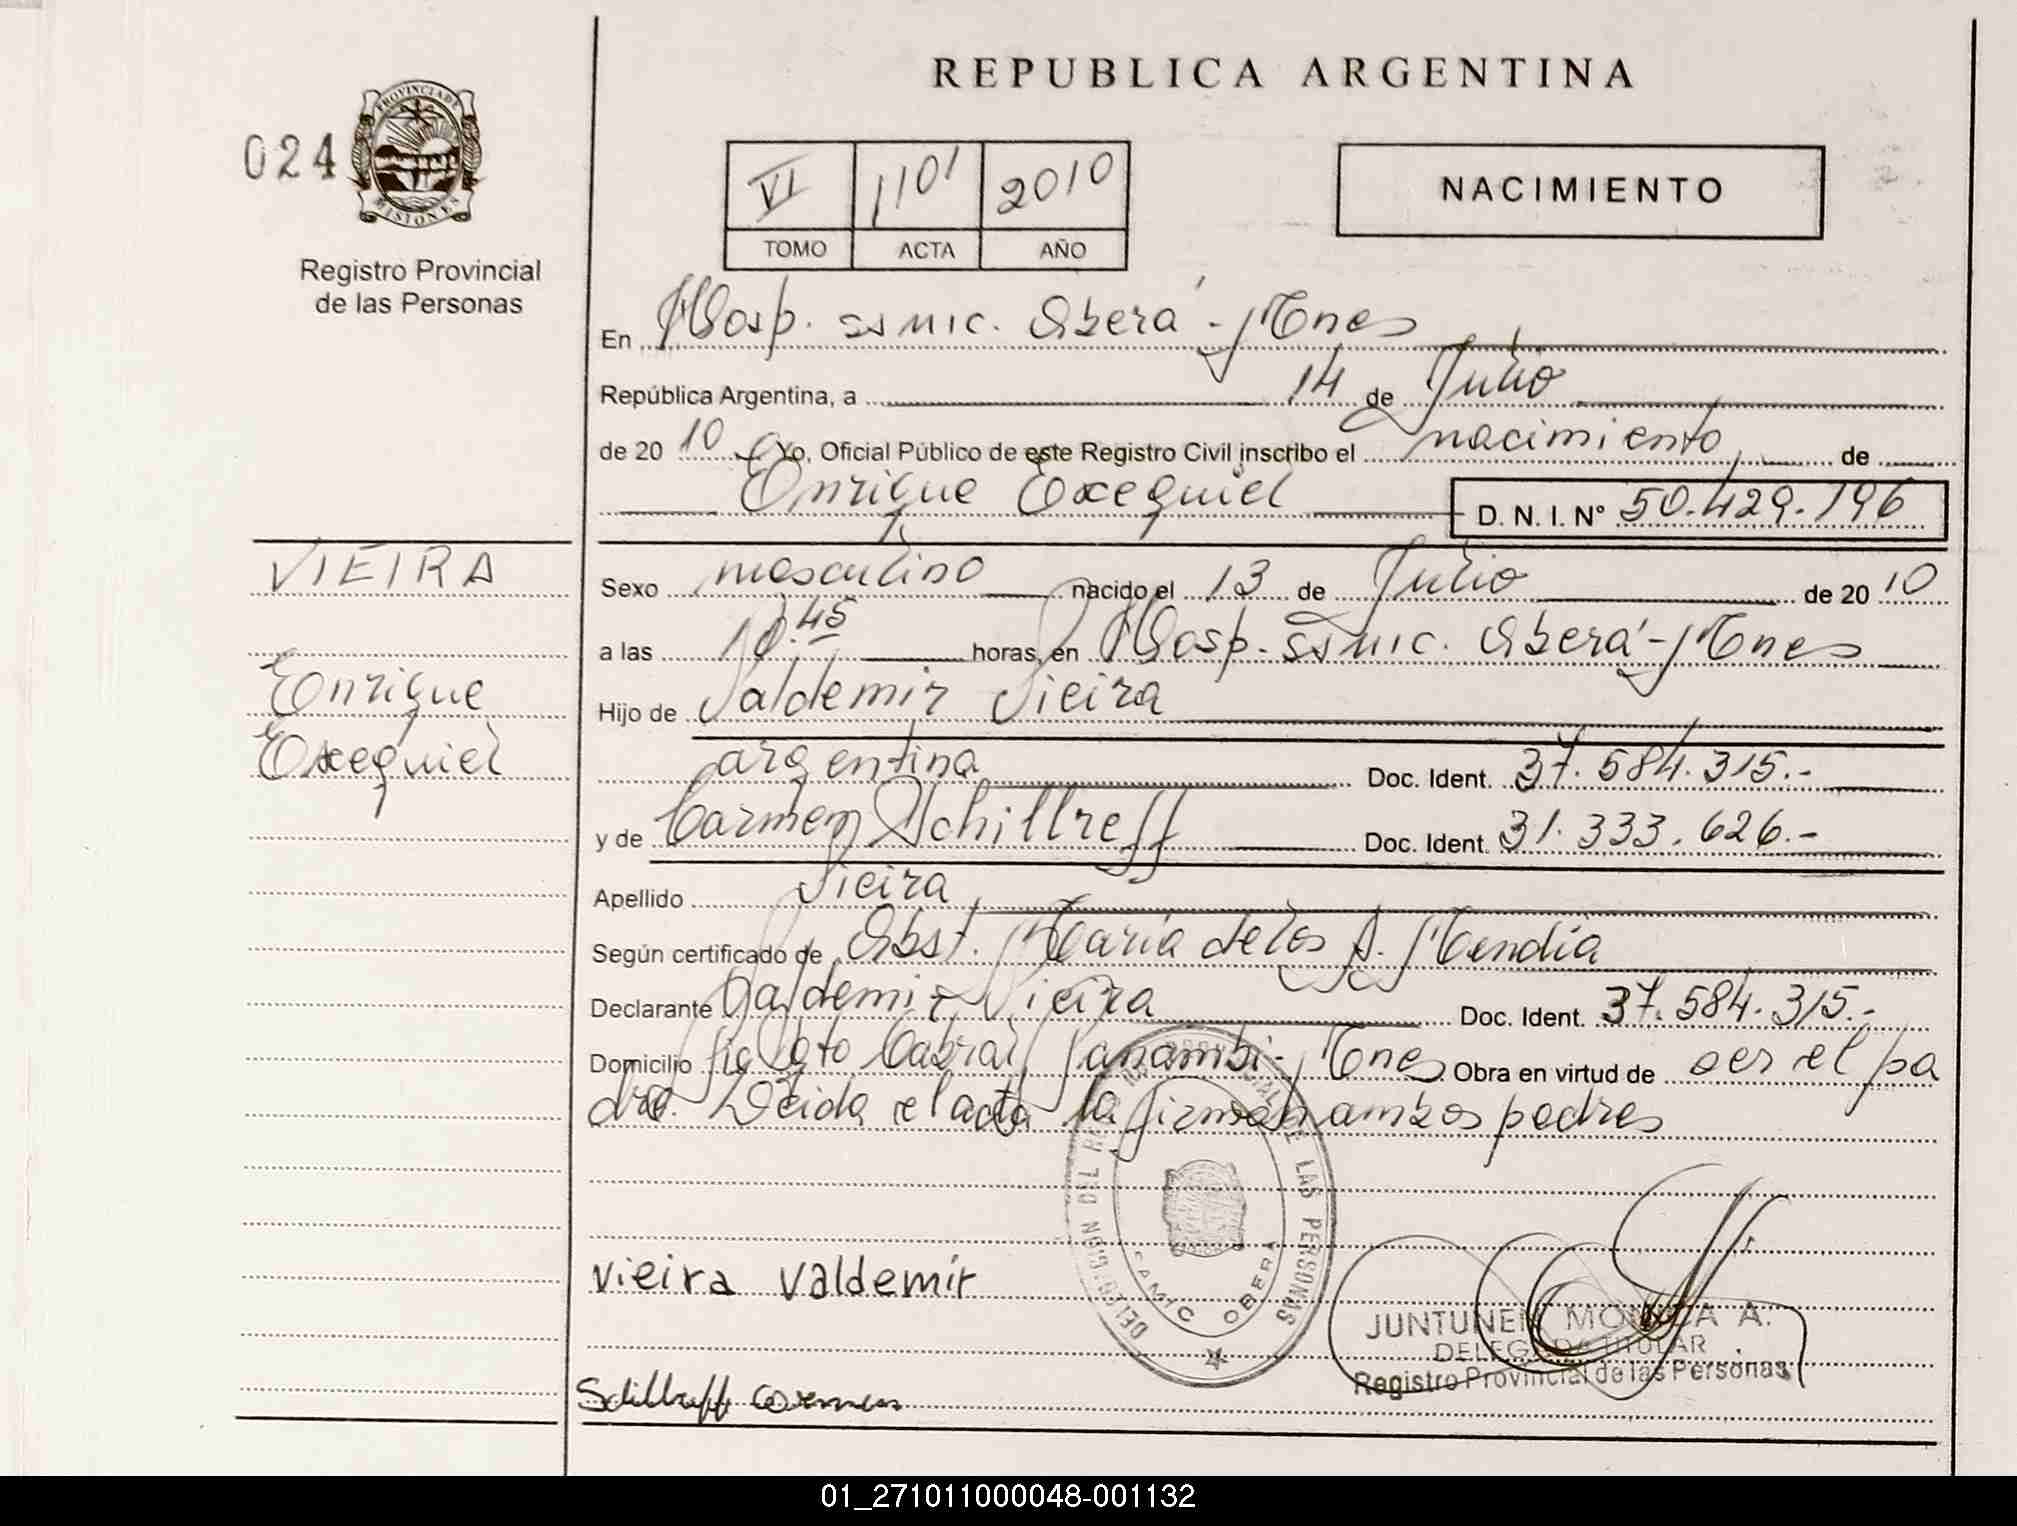 REPUBLICA ARGENTINA
024
PROVINCIA DE
MISIONES
Registro Provincial
de las Personas
VI 1101 2010
TOMO ACTA AÑO
NACIMIENTO
En Hosp. Samic. Oberá - Mnes
República Argentina, a 14 de Julio
de 20 10 Yo, Oficial Público de este Registro Civil inscribo el nacimiento de
Enrique Exequiel D. N. I. N° 50.429.196
VIEIRA
Enrique
Exequiel
Sexo masculino nacido el 13 de Julio de 20 10
a las 10.45 horas, en Hosp. Samic. Oberá - Mnes
Hijo de Valdemir Vieira
argentina Doc. Ident. 37.584.315.-
y de Carmen Schillreff Doc. Ident. 31.333.626.-
Apellido Vieira
Según certificado de Obst. María de los A. Mendia
Declarante Valdemir Vieira Doc. Ident. 37.584.315.-
Domicilio Sgto Cabral Panambi - Mnes Obra en virtud de ser el pa
dre. Leida el acta la firman ambos padres
DELEGACION DEL REGISTRO PROVINCIAL DE LAS PERSONAS
SAMIC OBERA
Vieira Valdemir
JUNTUNEN MONICA A.
DELEGADA TITULAR
Registro Provincial de las Personas
Schillreff Carmen
01_271011000048-001132